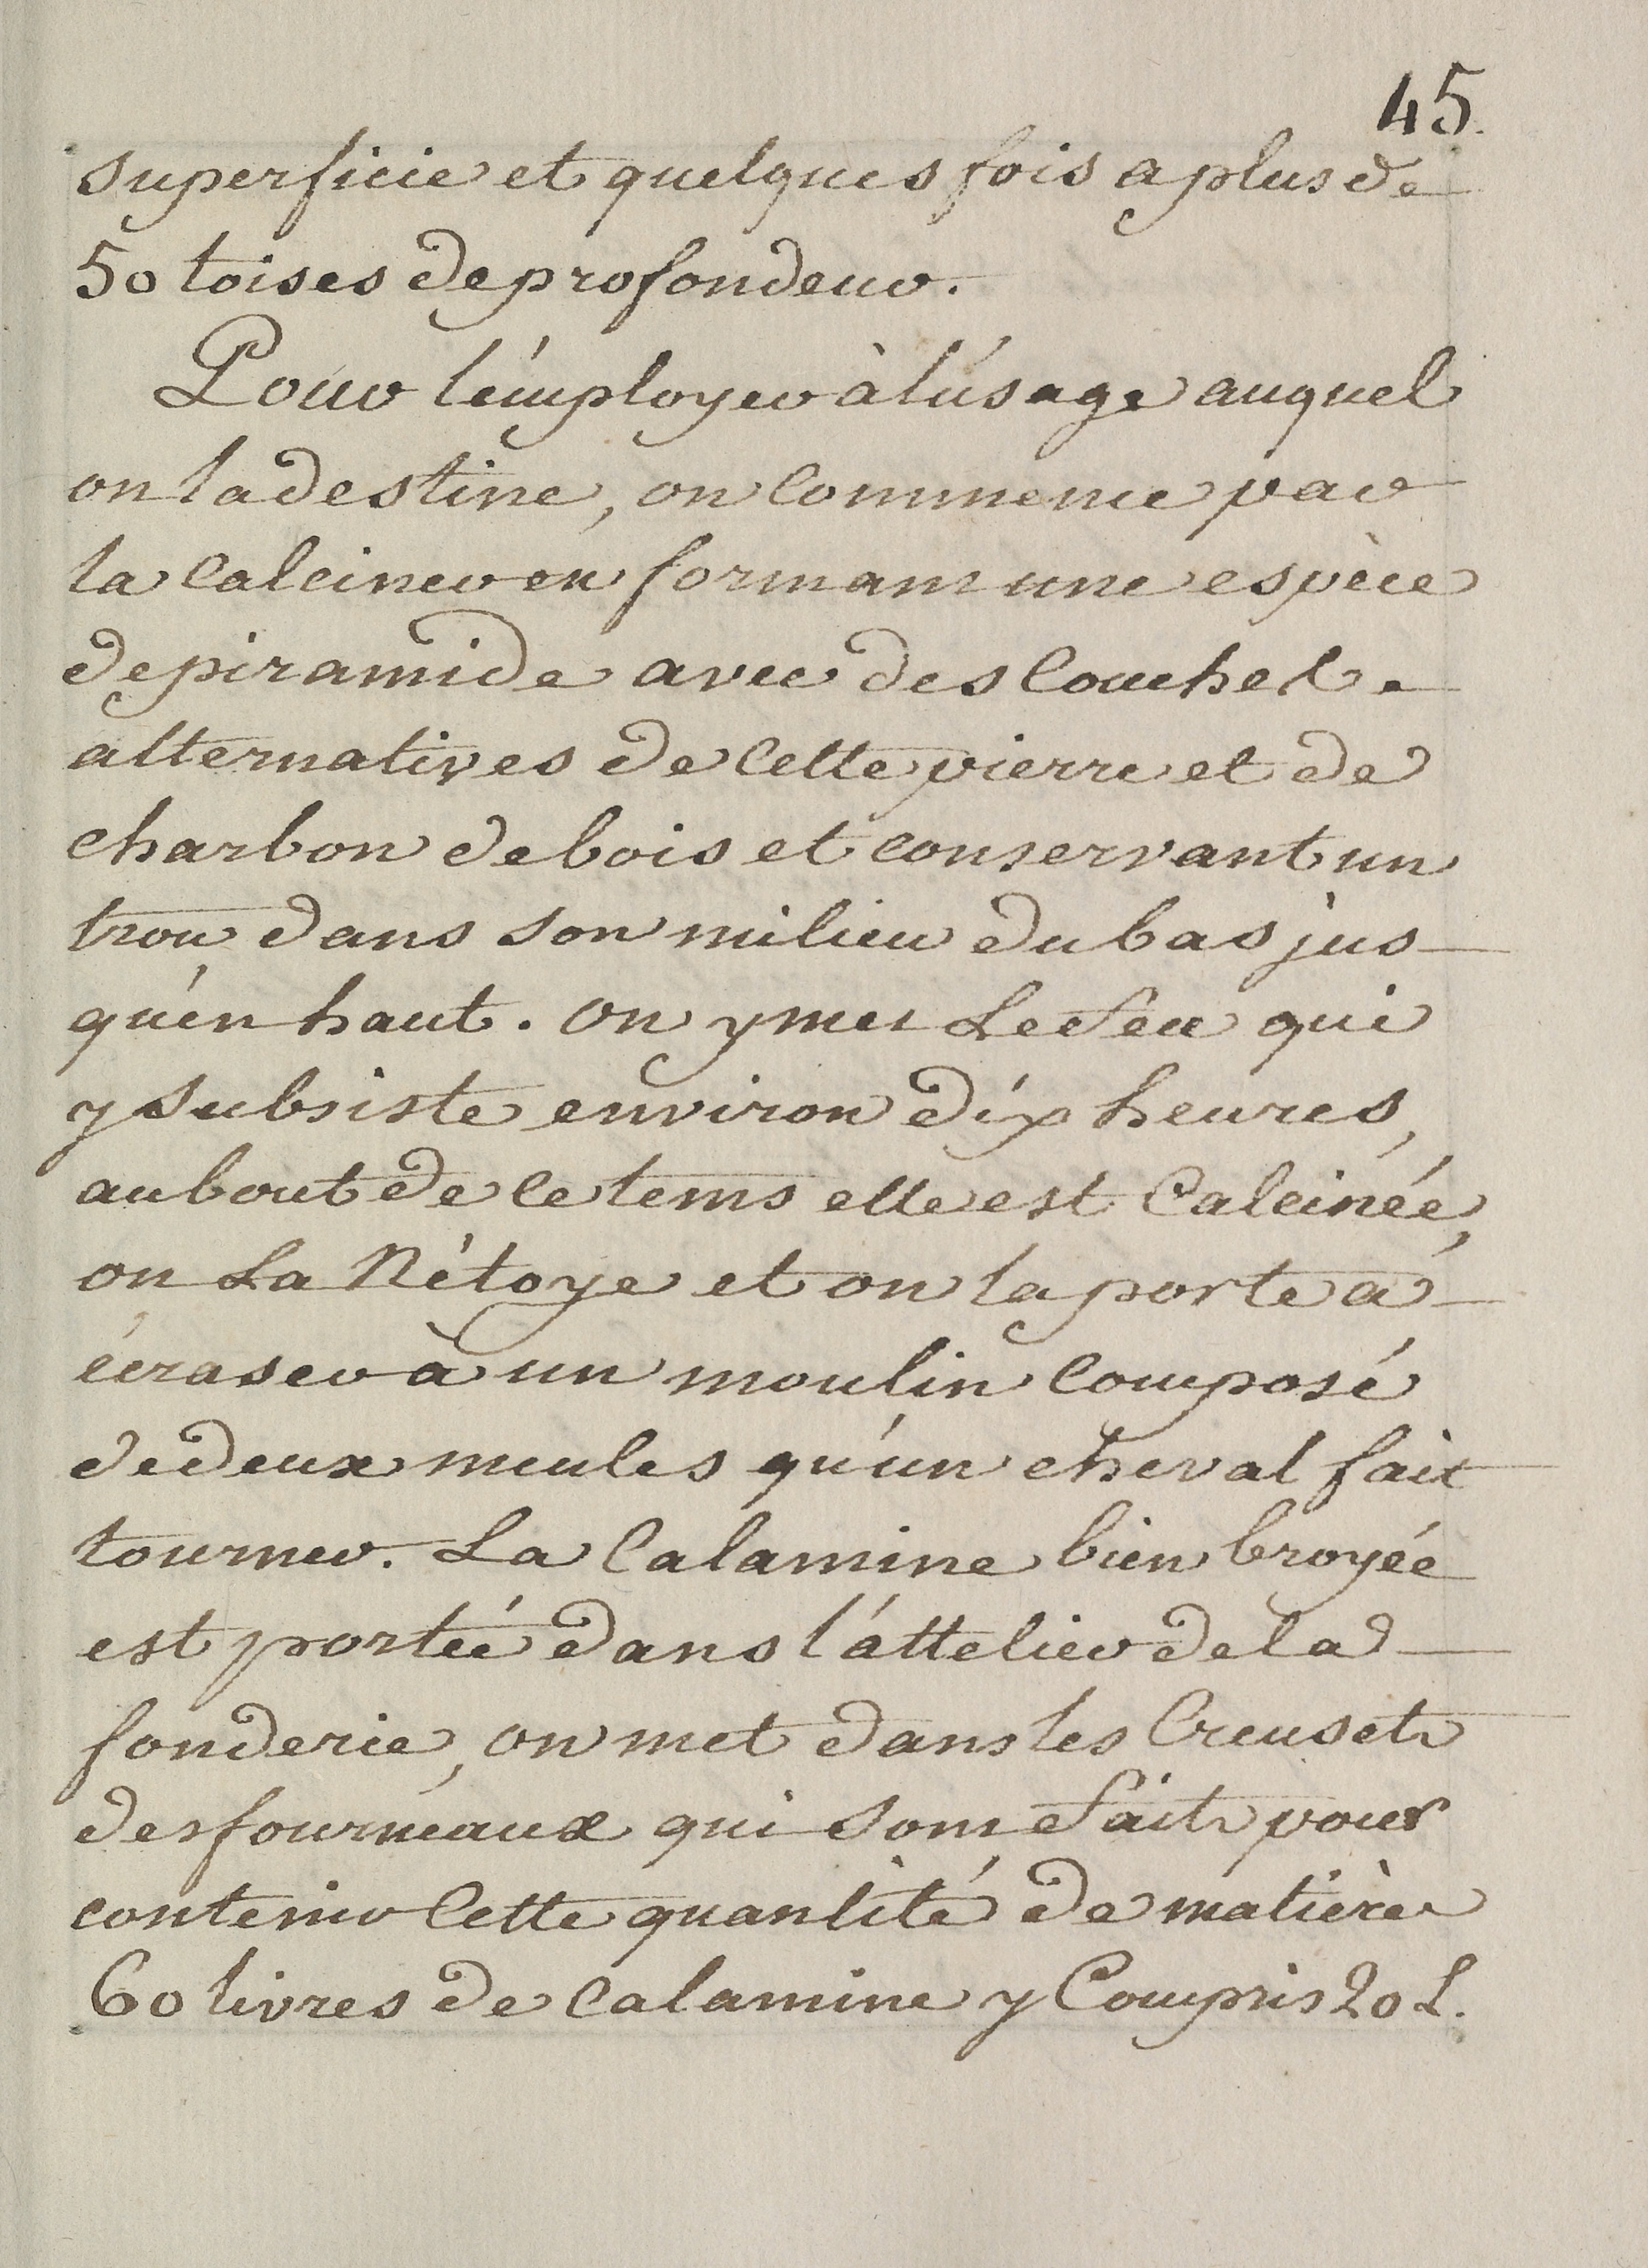 45.
superficie et quelques fois a plus de
50 toises de profondeur.
Pour l'employer à l'usage auquel
on la destine, on commence par
la calciner en formant une espèce
de piramide avec des couches
alternatives de cette pierre et de
charbon de bois et conservant un
trou dans son milieu du bas jus
qu'en haut. on y met le feu qui
y subsiste environ dix heures,
au bout de ce tems elle est calcinée,
on la nétoye et on la porte a
écraser à un moulin composé
de deux meules qu'un cheval fait
tourner. La calamine bien broyée
est portée dans l'attelier de la
fonderie, on met dans les creusets
des fourneaux qui sont faits pour
contenir cette quantité de matière
60 livres de calamine y compris 20 L.